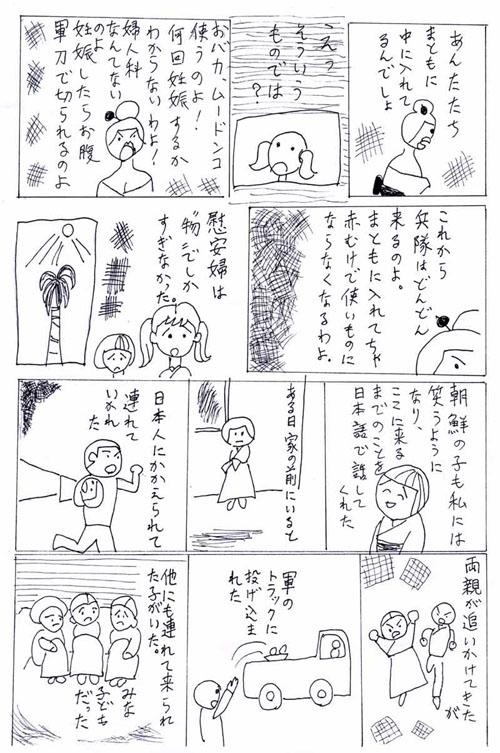 あんたたち
まともに
中に入れて
るんでしょ
えっ
そういう
ものでは
？
おバカ、ムードンコ
使うのよ！
何回妊娠するか
わからないわよ！
婦人科
なんてない
のよ
妊娠したらお腹
軍刀で切られるのよ
これから
兵隊はどんどん
来るのよ。
まともに入れてちゃ
赤むけで使いものに
ならなくなるわよ。
慰安婦は
〝物〟でしか
すぎなかった。
朝鮮の子も私には
笑うように
なり、
ここに来る
までのことを
日本語で話して
くれた
ある日家の前にいると
日本人にかかえられて
連れて
いかれ
た
両親が追いかけてきた
が
軍の
トラックに
投げ込ま
れた
他にも連れて来られ
た子がいた。
みな
子ども
だった